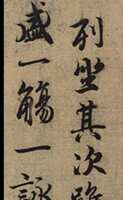 列坐其次雖
盛一觴一詠